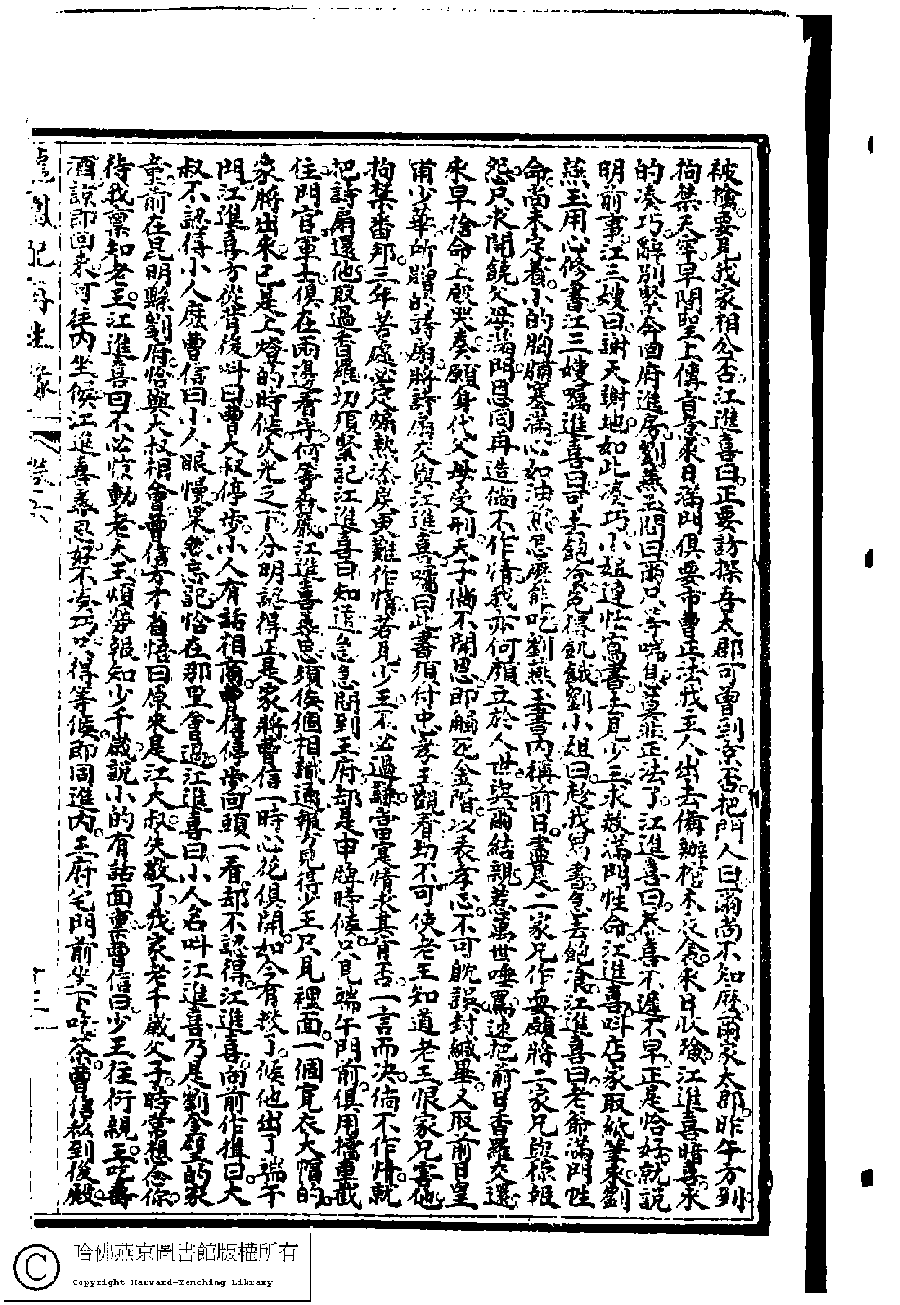 被擒要見我家相公否江進喜曰正要訪探吾太郡可曾到京否把門人曰爾尚不知麽爾家太郡昨午方到
拘禁天牢早間聖上傳旨參來日滿門俱要市曹正法我主人出去備辦棺木衣衾來日收殮江進喜暗喜來
的湊巧辭別緊々回府進房劉燕玉問曰爾只等喘息莫非正法了江進喜曰恭喜不遲不早正是恰好就說
明前事江三嫂曰謝天謝地如此湊巧小姐連忙寫書去見少王求救滿門性命江進喜叫店家取紙筆來劉
燕玉用心修書江三嫂囑進喜曰可去飽飡免得飢餓劉小姐曰趁我寫書急去飽飡江進喜曰老爺滿門性
命尚未定着小的胸膈塞滿心如油煎怎麽能吃劉燕玉書內稱前日盡是二家兄作孽願將二家兄與你報
怨只求開饒父母滿門恩同再造倘不作情我亦何顏立於人世與爾結親惹萬世唾罵速把前日香羅交還
來早捨命上殿哭奏願身代父母受刑天子倘不開恩即觸死金階以表孝心不可躭誤封緘畢又取前日皇
甫少華所贈的詩扇將詩扇交與江進喜囑曰此書須付忠孝王觀看切不可使老王知道老王恨家兄害他
拘禁番邦三年苦處必定煽動添房更難作情若見少王不必過謙盡言寔情求其肯否一言而決倘不作情就
把詩扇還他取過香羅切須緊記江進喜曰知道急急問到王府却是申牌時候只見端午門前俱用攩重截
住門官軍士俱在兩邊看守何等森嚴江進喜尋思須俟個相識通報方見得少王只見裡面一個寬衣大帽的
家將出來已是上燈的時候火光之下分明認得正是家將曹信一時心花俱開如今有救了候他出了端午
門江進喜方從背後叫曰曹大叔停步小人有話相商曹信停步回頭一看却不認得江進喜向前作揖曰大
叔不認得小人麽曹信曰小人眼慢果然忘記恰在那里會過江進喜曰小人名叫江進喜乃是劉奎璧的家
童前在昆明縣劉府恰與大叔相會曹信方才省悟曰原來是江大叔失敬了我家老千歲父子時常想念你
待我稟知老王江進喜曰不必驚動老大王煩勞報知少千歲說小的有話面稟曹信曰少王往衍親王吃壽
酒諒即回來可往內坐候江進喜尋思好不湊巧只得等候即同進內王府宅門前坐下吃茶曹信報到後殿
龍鳳配再生緣
卷六
十三
哈佛燕京圖書館版權所有
Copyright Harvard-Yenching Library